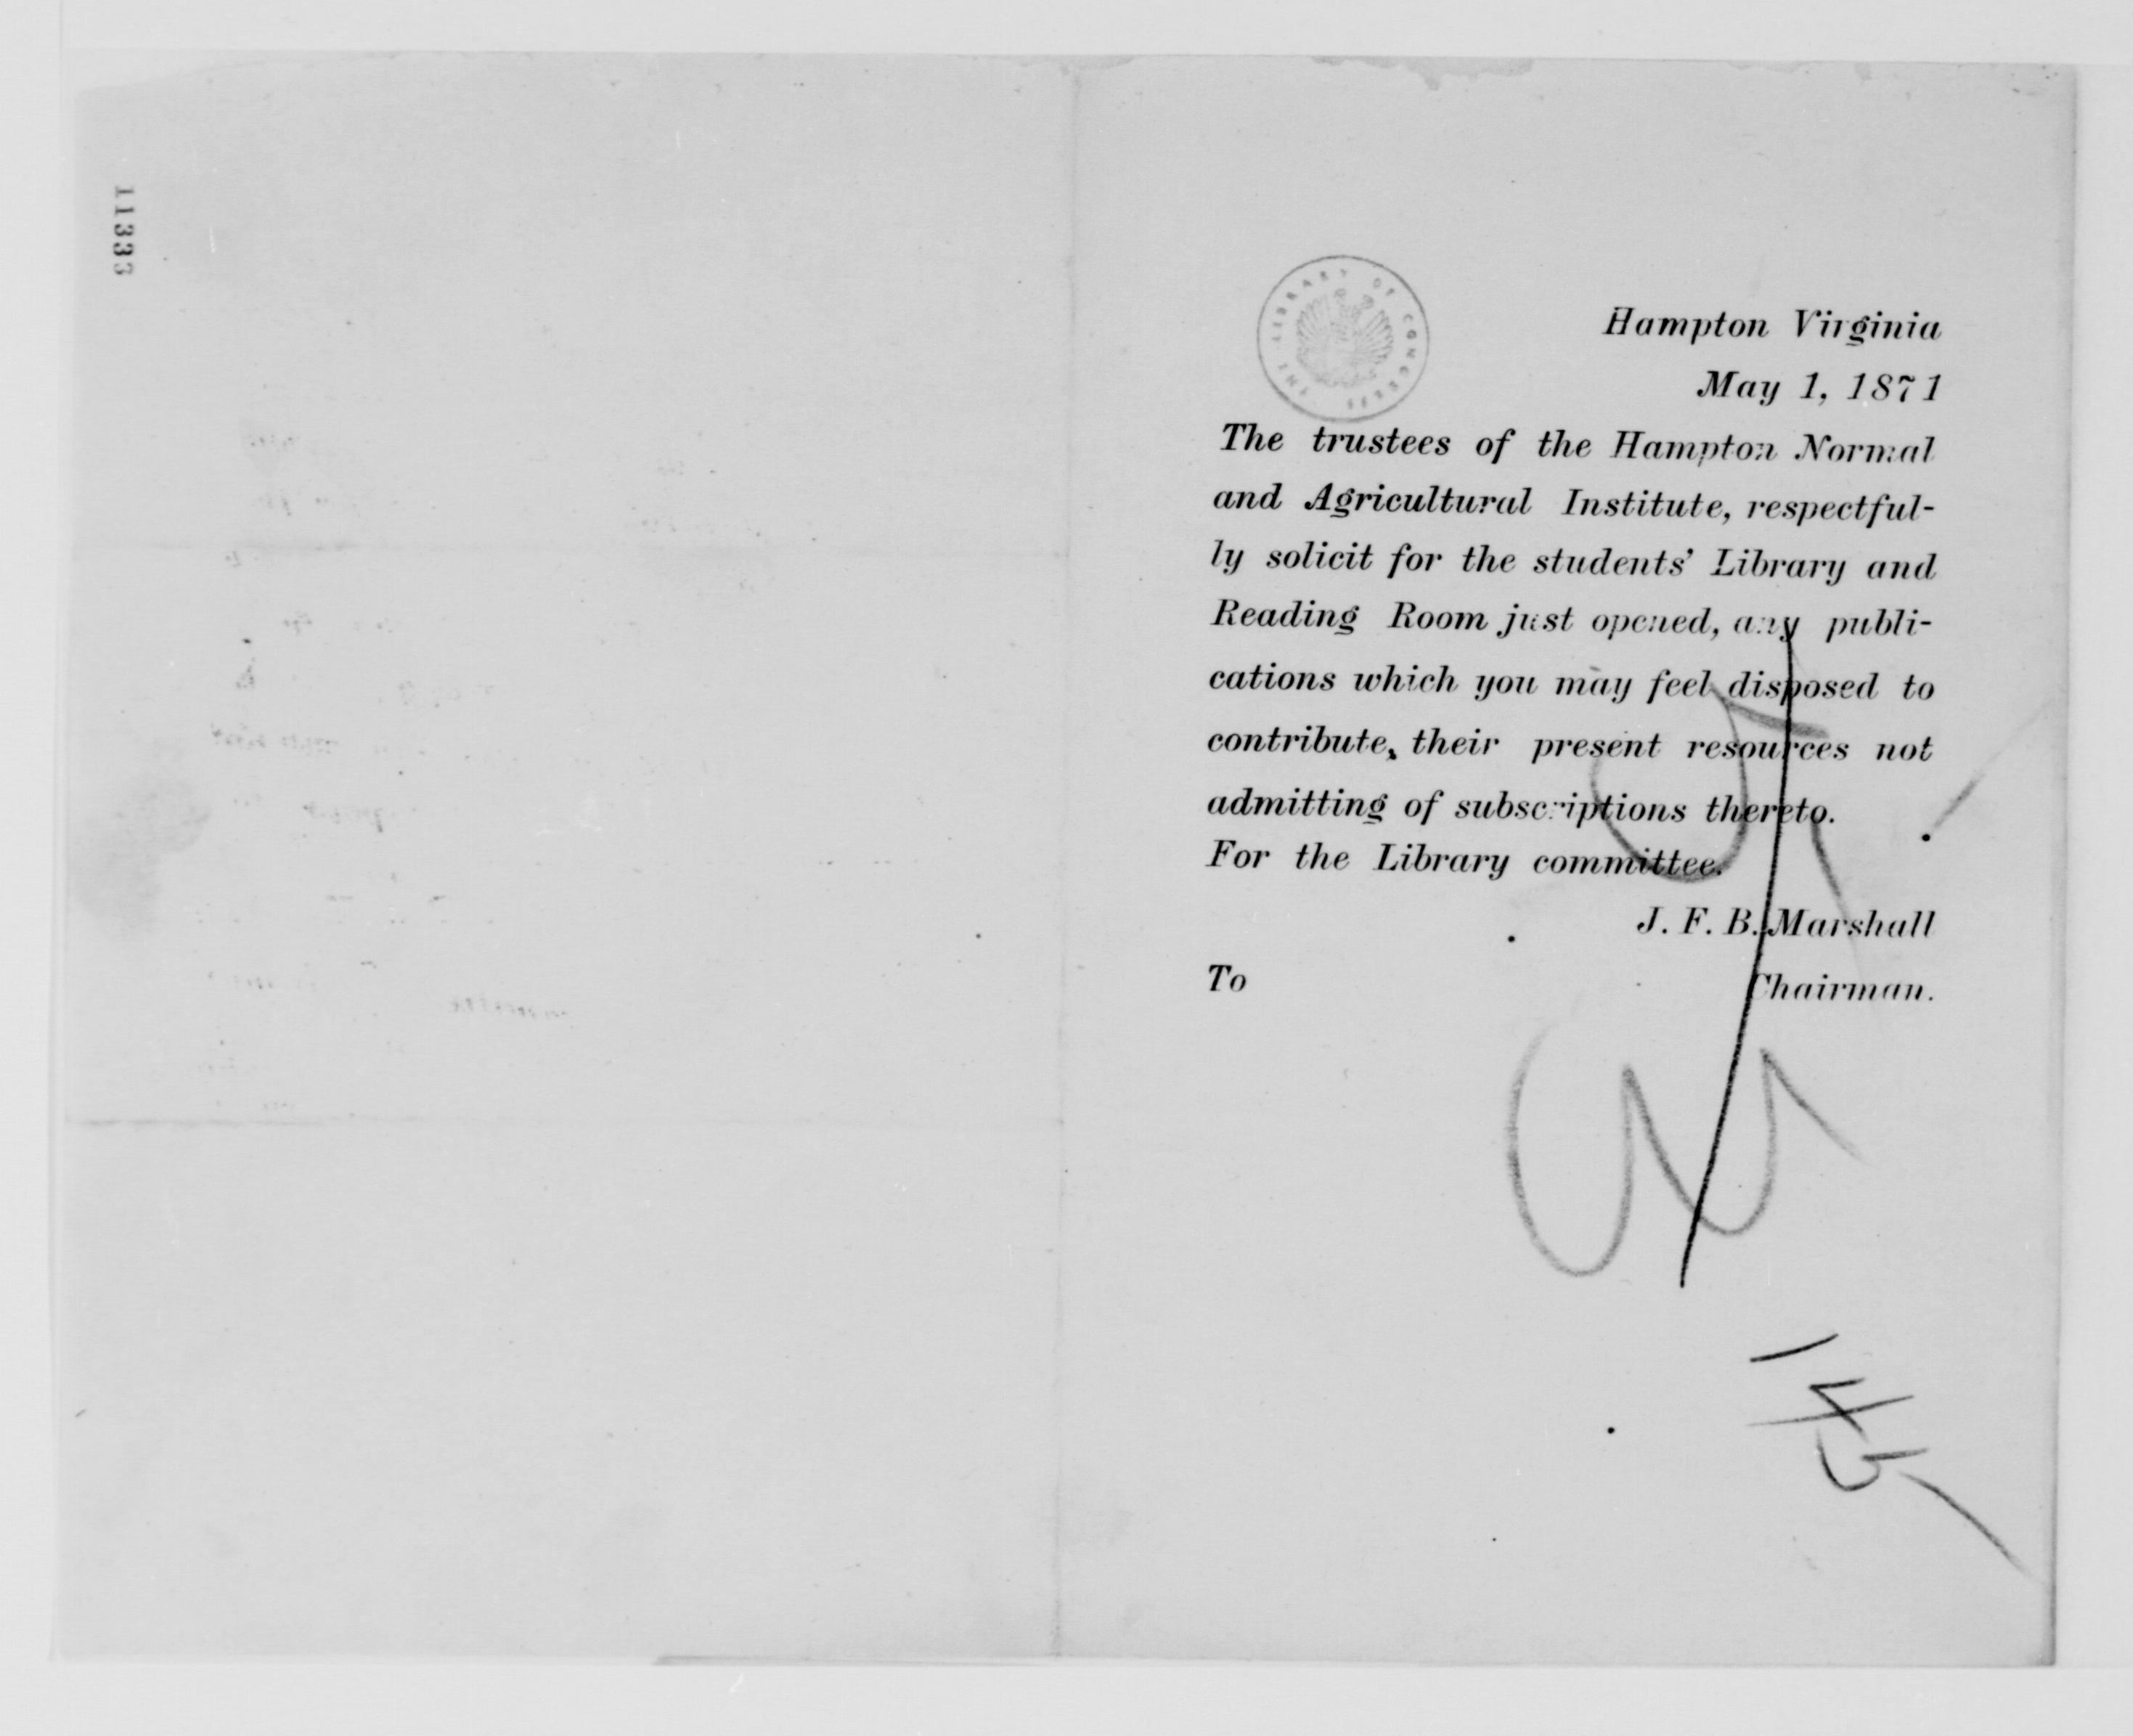 11333
THE LIBRARY OF CONGRESS
Hampton Virginia
May 1, 1871
The trustees of the Hampton Normal
and Agricultural Institute, respectful-
ly solicit for the students' Library and
Reading Room just opened, any publi-
cations which you may feel disposed to
contribute, their present resources not
admitting of subscriptions thereto.
For the Library committee.
J. F. B. Marshall
To Chairman.
145